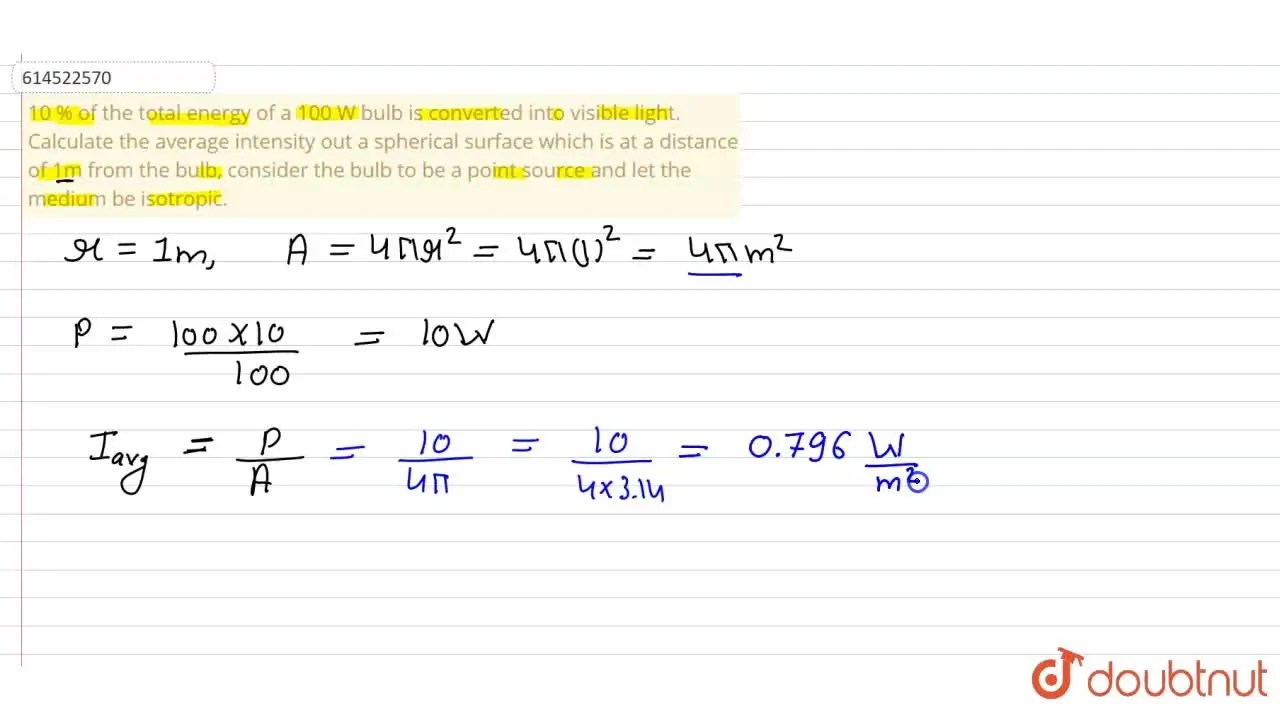 614522570
10 % of the total energy of a 100 W bulb is converted into visible light.
Calculate the average intensity out a spherical surface which is at a distance
of 1m from the bulb, consider the bulb to be a point source and let the
medium be isotropic.
r = 1m, A = 4πr² = 4π(1)² = 4π m²
P = 100×10/100 = 10W
I_avg = P/A = 10/4π = 10/4×3.14 = 0.796 W/m²
doubtnut